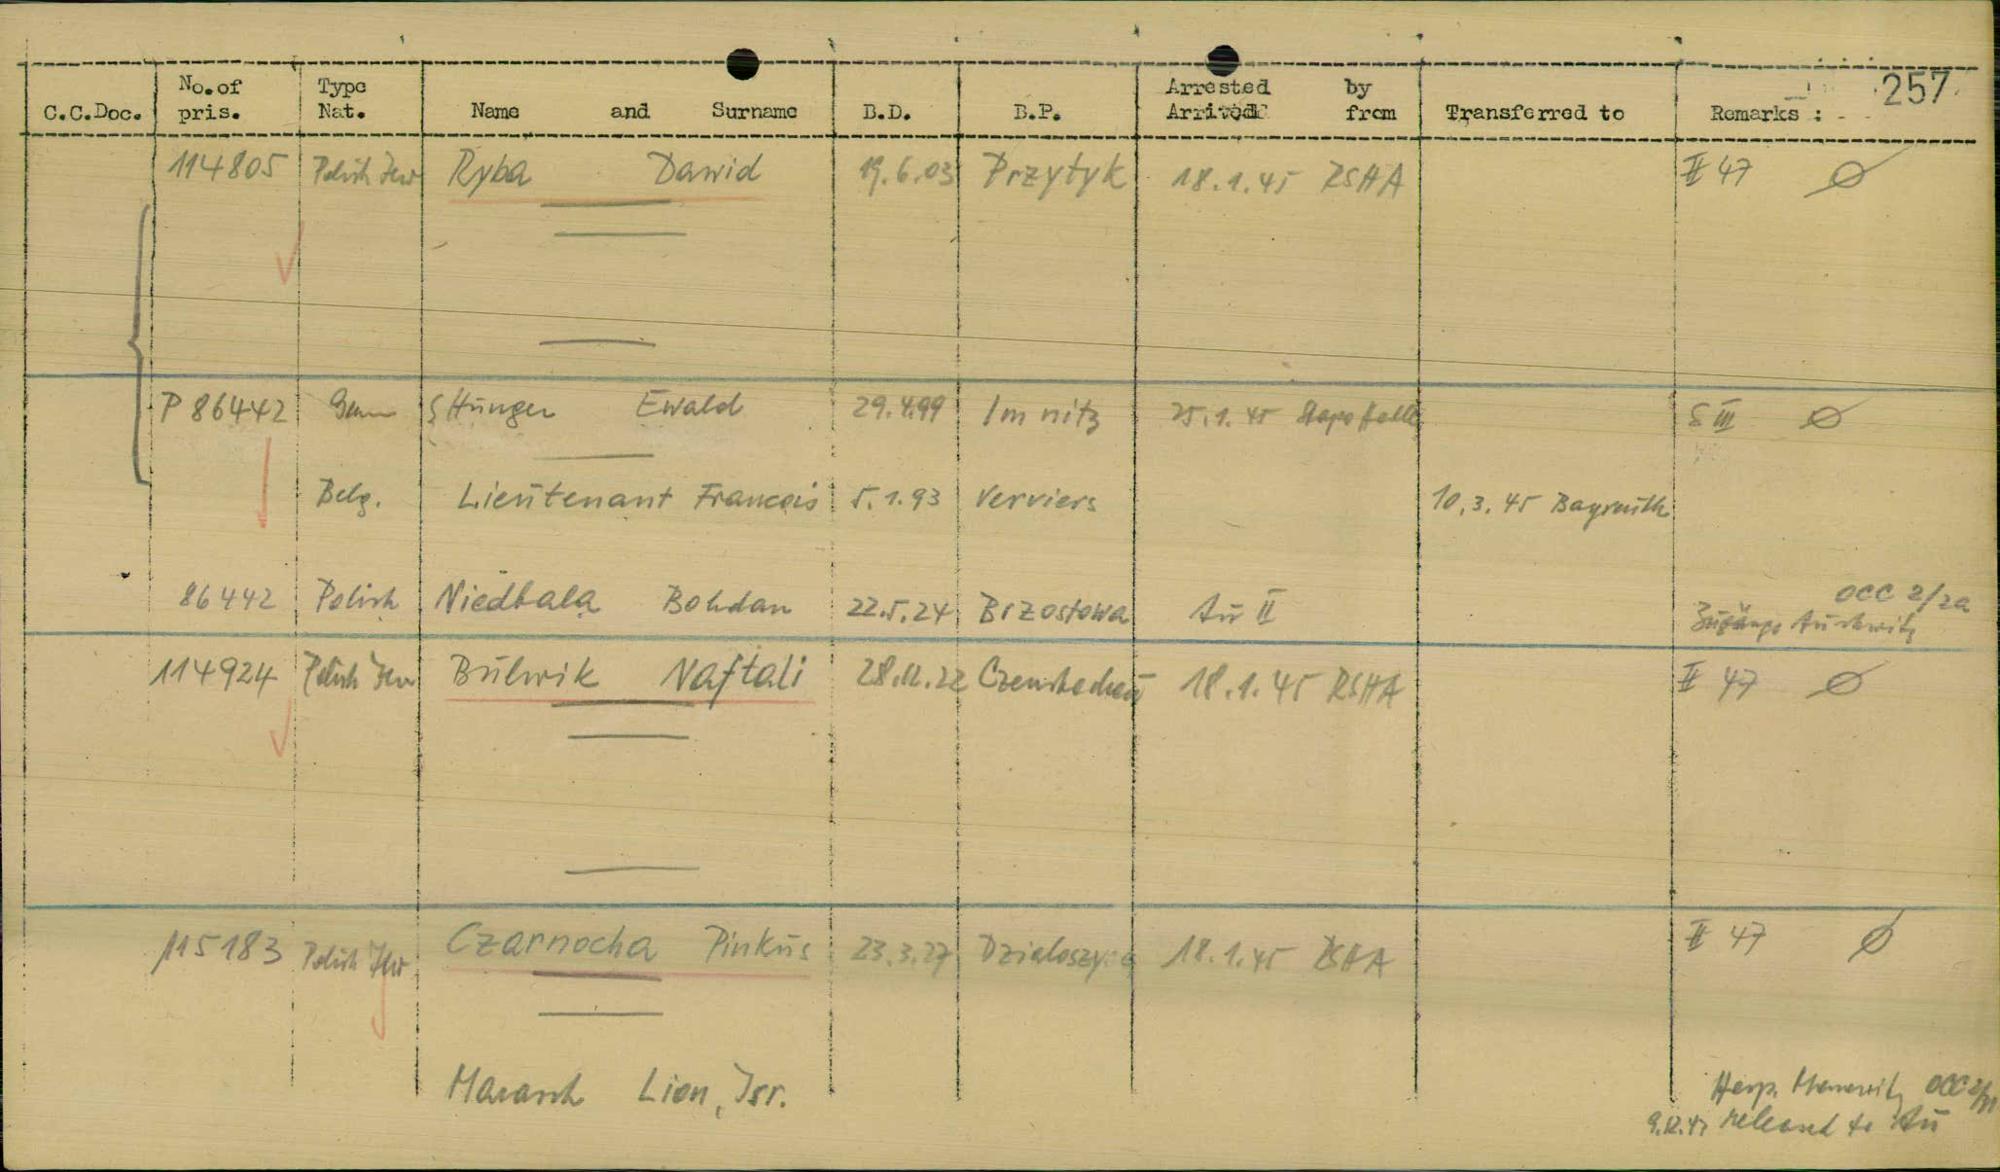 257
No. of Type Arrested by
C.C.Doc. pris. Nat. Name and Surname B.D. B.P. Arrived from Transferred to Remarks :
114805 Polish Jew Ryba Dawid 19.6.03 Przytyk 18.1.45 RSHA II 47 Ø
P 86442 Germ Hünger Ewald 29.4.99 Imnitz 25.1.45 Stapo Halle S III Ø
Belg. Lieütenant Francois 5.1.93 Verviers 10.3.45 Bayreüth
OCC 2/2a
86442 Polish Niedbala Bohdan 22.5.24 Brzostowa Aü II Zugänge Auschwitz
114924 Polish Jew Bülwik Naftali 28.12.22 18.1.45 RSHA II 47 Ø
115183 Polish Jew Czarnocha Pinküs 23.3.27 Dzialoszyce 18.1.45 RSHA II 47 Ø
Lion, Isr. OCC
released to Aü